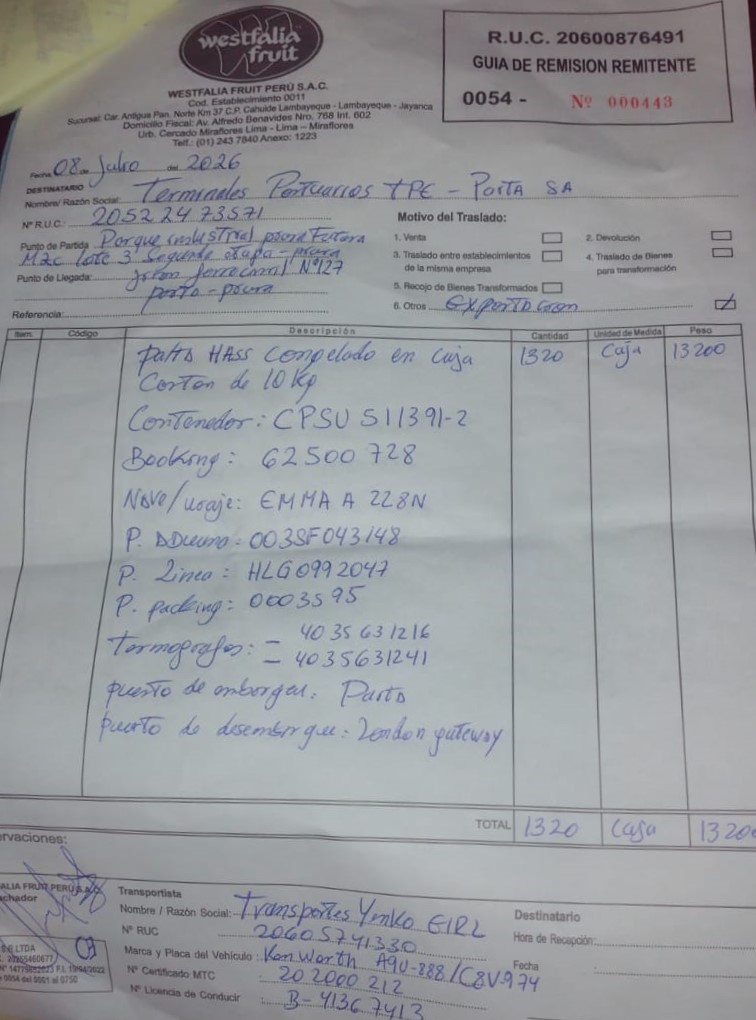 westfalia
fruit
WESTFALIA FRUIT PERÚ S.A.C.
Cod. Establecimiento 0011
Sucursal: Car. Antigua Pan. Norte Km 37 C.P. Cahuide Lambayeque - Lambayeque - Jayanca
Domicilio Fiscal: Av. Alfredo Benavides Nro. 768 Int. 602
Urb. Cercado Miraflores Lima - Lima - Miraflores
Telf.: (01) 243 7840 Anexo: 1223
R.U.C. 20600876491
GUIA DE REMISION REMITENTE
0054 - Nº 000443
Fecha 08 de Julio del 2026
DESTINATARIO
Nombre/ Razón Social: Terminales Portuarios TPE - Paita SA
Nº R.U.C.: 20522473571
Punto de Partida Parque industrial piura Futura
Mzc lote 3 Segunda etapa - piura
Punto de Llegada: Jiron ferrocarril Nº127
paita - piura
Referencia:
Motivo del Traslado:
1. Venta
2. Devolución
3. Traslado entre establecimientos de la misma empresa
4. Traslado de Bienes para transformación
5. Recojo de Bienes Transformados
6. Otros Exportacion
Item. Código Descripción Cantidad Unidad de Medida Peso
palta HASS Congelado en caja 1320 Caja 13200
Carton de 10 Kg
Contenedor: CPSU 511391-2
Booking: 62500728
Nave/viaje: EMMA A 228N
P. ADuana: 003SF043148
P. Linea: HLG0992047
P. packing: 0003595
Termografos: - 4035631216
- 4035631241
puerto de embarque: Paita
puerto de desembarque: London gateway
TOTAL 1320 Caja 1320
ervaciones:
ALIA FRUIT PERÚ S.A.C.
achador
Transportista
Nombre / Razón Social: Transportes Yenko EIRL
Nº RUC 20605741330
Marca y Placa del Vehículo: KenWorth A9U-888/C8V974
Nº Certificado MTC 202000212
Nº Licencia de Conducir : B-41367413
Destinatario
Hora de Recepción:
Fecha :